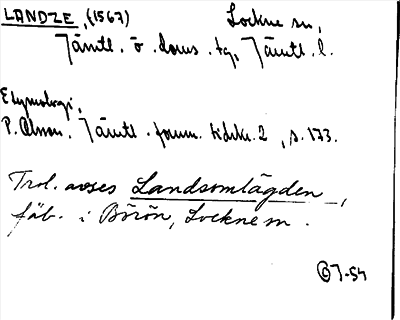 LANDZE, (1567) Lockne sn,
Jämtl. ö. doms. tg, Jämtl. l.
Etymologi,
P. Olsson. Jämtl. forn. tidskr. 2, s. 173.
Trol. avses Landsomtägden,
fäb. i Börön, Lockne sn.
J-54